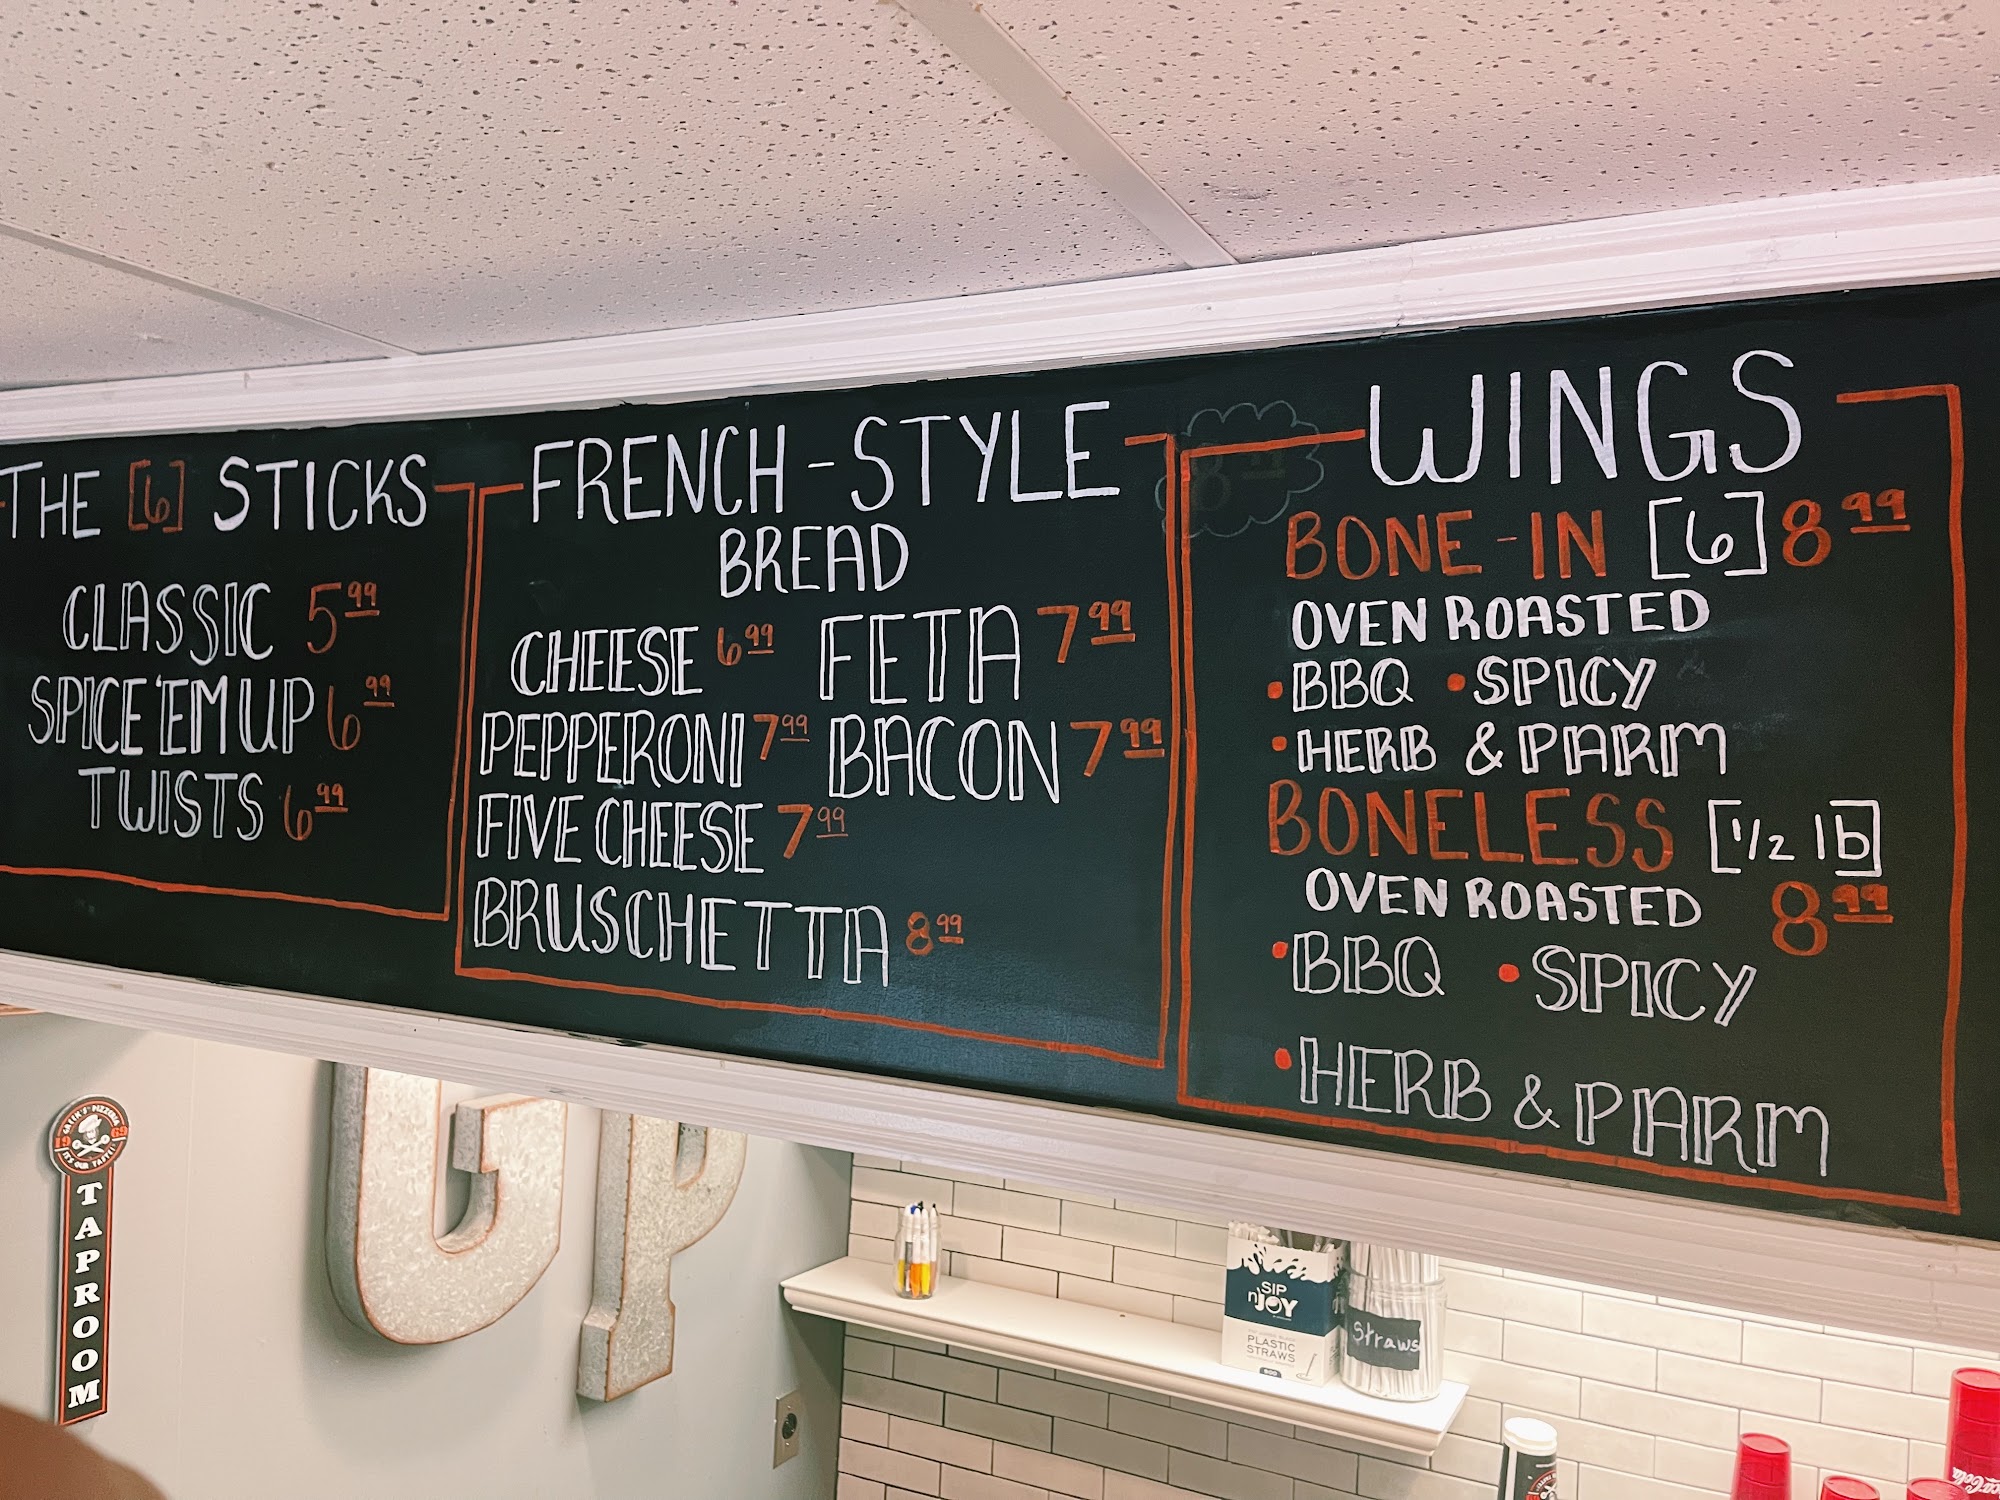 THE [6] STICKS
CLASSIC 5.99
SPICE 'EM UP 6.99
TWISTS 6.99
FRENCH-STYLE
BREAD
CHEESE 6.99
PEPPERONI 7.99
FIVE CHEESE 7.99
BRUSCHETTA 8.99
FETA 7.99
BACON 7.99
WINGS
BONE-IN [6] 8.99
OVEN ROASTED
• BBQ • SPICY
• HERB & PARM
BONELESS [1/2 lb]
OVEN ROASTED 8.99
• BBQ • SPICY
• HERB & PARM
GP
1969
TAPROOM
SIP
n'JOY
PLASTIC
STRAWS
Straws
Coca-Cola